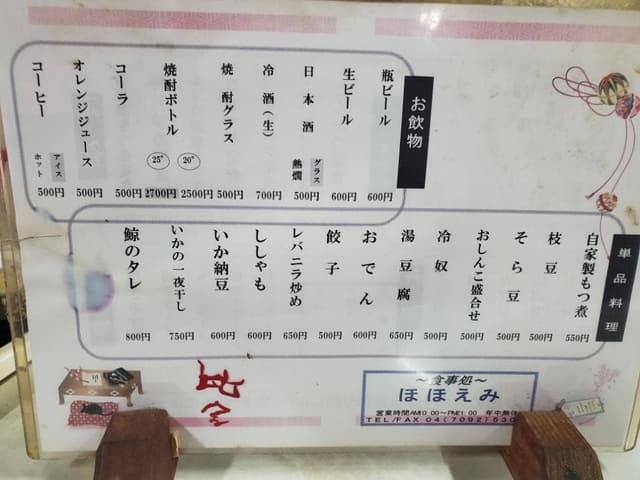 お飲物
瓶ビール 600円
生ビール 600円
日本酒 グラス 熱燗 500円
冷酒(生) 700円
焼酎グラス 500円
焼酎ボトル 20° 2500円
25° 2700円
コーラ 500円
オレンジジュース 500円
コーヒー アイス ホット 500円
単品料理
自家製もつ煮 550円
枝豆 500円
そら豆 500円
おしんこ盛合せ 500円
冷奴 500円
湯豆腐 650円
おでん 600円
餃子 500円
レバニラ炒め 650円
ししゃも 600円
いか納豆 600円
いかの一夜干し 750円
鯨のタレ 800円
～食事処～
ほほえみ
営業時間AM10:00～PM11:00 年中無休
TEL/FAX 04(7092)530